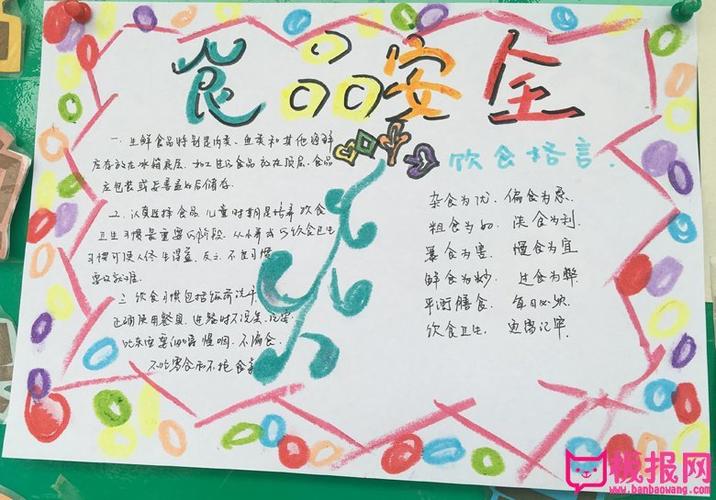 食品安全
一、生鲜食品特别是肉类、鱼类和其他海鲜
应存放在冰箱底层、加工性食品放在顶层、食品
应包装或是覆盖好后储存.
二、认真选择食品 儿童时期是培养饮食
卫生习惯最重要的阶段 从小养成
习惯可使人终生得益 反之 不良习惯
三 饮食习惯包括饭前洗手
正确使用餐具
吃东西要细嚼慢咽 不偏食
不吃零食
饮食格言.
杂食为优、偏食为忌
粗食为好、淡食为利
暴食为害、慢食为宜
鲜食为妙、过食为弊
平衡膳食、每日必须
饮食卫生、更需记牢
板报网
www.banbaowang.com